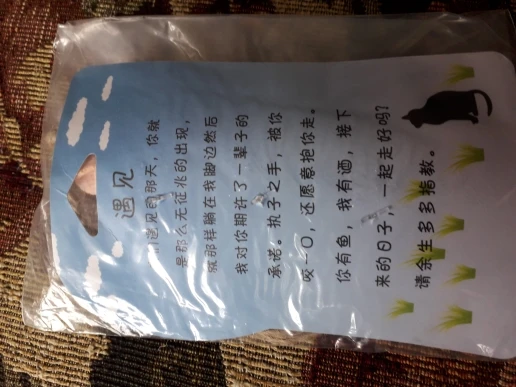 遇见
们遇见的那天，你就
是那么无征兆的出现，
就那样躺在我脚边然后
我对你期许了一辈子的
承诺。执子之手，被你
咬一口，还愿意把你走。
你有鱼，我有酒，接下
来的日子，一起走好吗？
请余生多多指教。